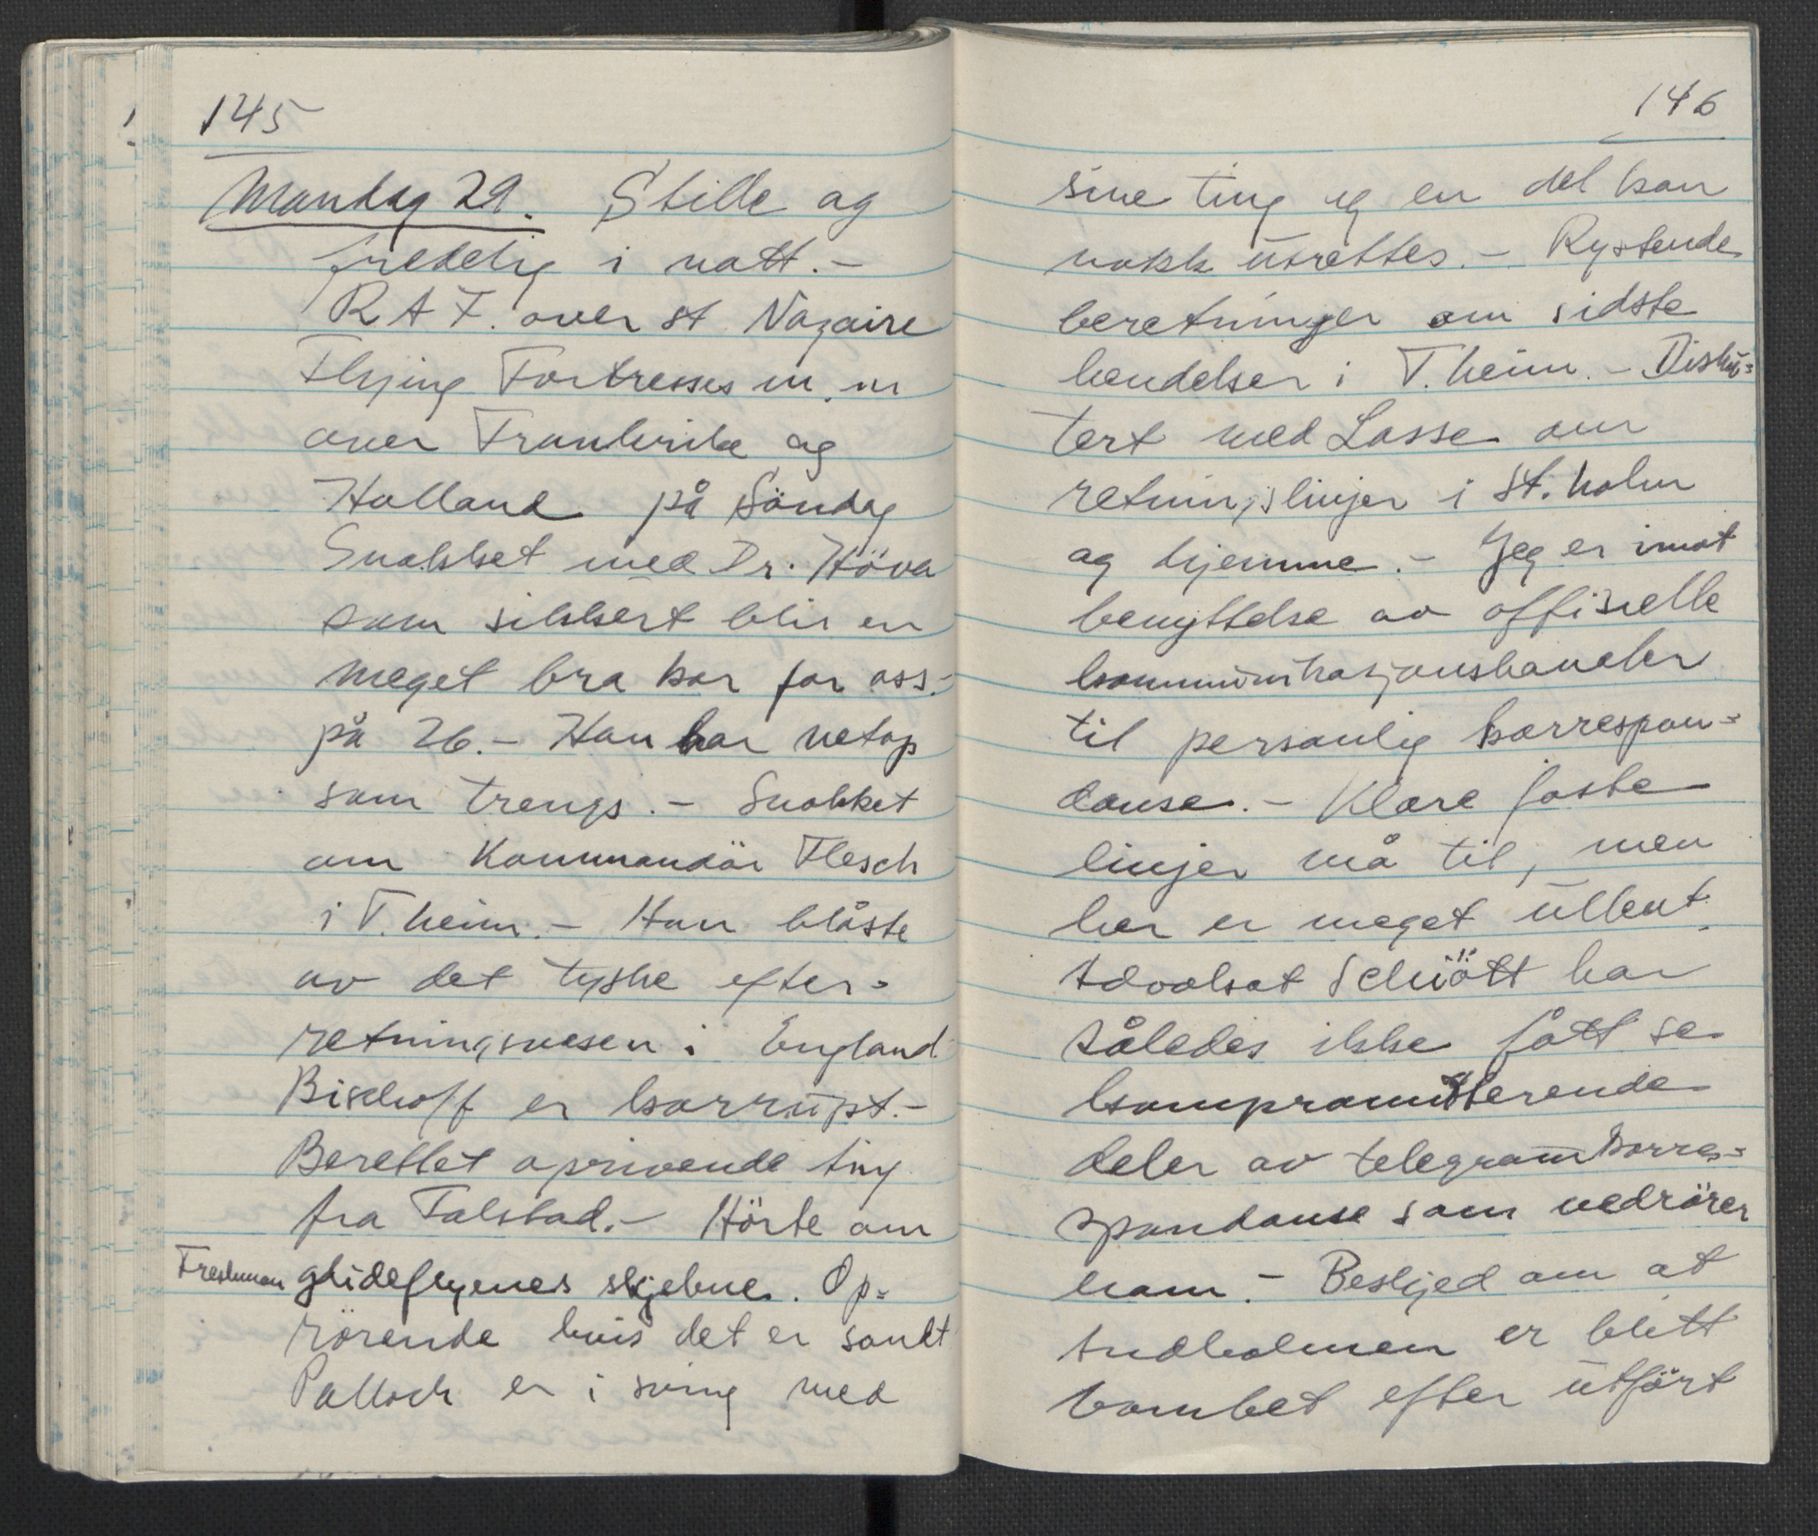 145
Mandag 29. Stille og
fredelig i natt. -
R A F. over st Nazaire
Flying Fortresses m.m
over Frankrike og
Holland på Söndag
Snakket med Dr. Höva
som sikkert blir en
meget bra kar for oss. -
på 26. - Han har netop
som trengs. - Snakket
om Kommandör Flesch
i T.heim. - Han blåste
av det tyske efter=
retningsvesen i England
Bischoff er korrupt. -
Berettet oprivende ting
fra Falstad. - Hörte om
Freshman glideflyenes skjebne. Op=
rörende hvis det er sandt
Pallock er i sving med
146
sine ting og en del kan
nokk utrettes. - Rystende
beretninger om sidste
hendelser i T.heim. - Disku=
tert med Lasse om
retningslinjer i St.holm
og hjemme. - Jeg er imot
benyttelse av offisielle
kommunikasjonskaneler
til personlig korrespon=
danse. - Klare faste
linjer må til, men
her er meget ullent.
Advokat Schiött har
således ikke fått se
kompromitterende
deler av telegramkorre=
spondanse som vedrörer
ham. - Beskjed om at
Andholmen er blitt
bombet efter utfört